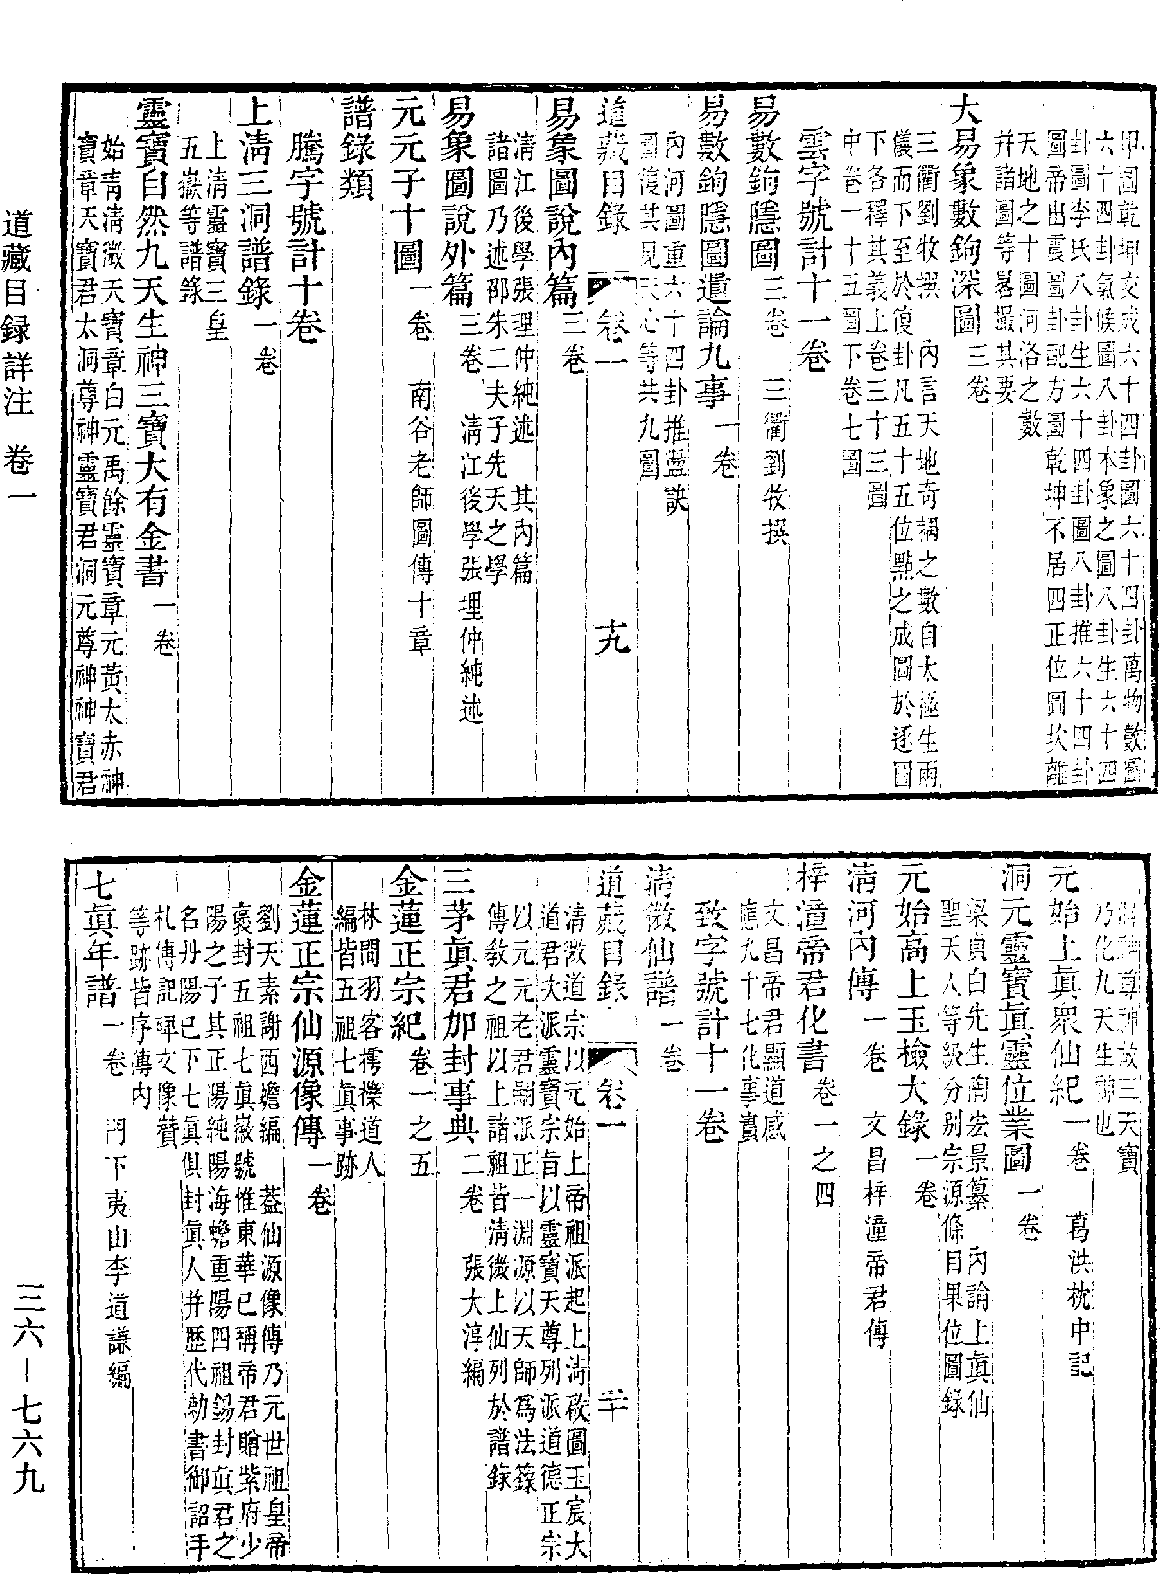 甲圖乾坤交成六十四卦圖六十四卦萬物數圖
六十四卦氣候圖八卦本象之圖八卦生六十四
卦圖李氏八卦生六十四卦圖八卦推六十四卦
圖帝出震圖卦配方圖乾坤不居四正位圖坎離
天地之十圖河洛之數
幷諸圖等畧撮其要
大易象數鉤深圖 三卷
三衢劉牧撰 內言天地奇耦之數自太極生兩
儀而下至於復卦凡五十五位點之成圖於逐圖
下各釋其義上卷三十三圖
中卷一十五圖下卷七圖
雲字號計十一卷
易數鉤隱圖 三卷 三衢劉牧撰
易數鉤隱圖遺論九事 一卷
內河圖重六十四卦推盪訣
圖復其見天心等共九圖
道藏目錄 卷一 十九
易象圖說內篇 三卷
淸江後學張理仲純述 其內篇
諸圖乃述邵朱二夫子先天之學
易象圖說外篇 三卷 淸江後學張理仲純述
元元子十圖 一卷 南谷老師圖傳十章
譜錄類
騰字號計十卷
上淸三洞譜錄 一卷
上淸靈寶三皇
五嶽等譜錄
靈寶自然九天生神三寶大有金書 一卷
始靑淸微天寶章白元禹餘靈寶章元黃太赤神
寶章天寶君太洞尊神靈寶君洞元尊神神寶君
洞神尊神故三天寶
乃化九天生神也
元始上眞衆仙紀 一卷 葛洪枕中記
洞元靈寶眞靈位業圖 一卷
梁貞白先生陶宏景纂 內論上眞仙
聖天人等級分別宗源條目果位圖錄
元始高上玉檢大錄 一卷
淸河內傳 一卷 文昌梓潼帝君傳
梓潼帝君化書 卷一之四
文昌帝君顯道感
應九十七化事實
致字號計十一卷
淸微仙譜 一卷
道藏目錄 卷一 二十
淸微道宗以元始上帝祖派起上淸啟圖玉宸大
道君大派靈寶宗旨以靈寶天尊列派道德正宗
以元元老君嗣派正一淵源以天師爲法籙
傳敎之祖以上諸祖皆淸微上仙列於譜錄
三茅眞君加封事典 二卷 張大淳編
金蓮正宗紀 卷一之五
林間羽客樗櫟道人
編皆五祖七眞事跡
金蓮正宗仙源像傳 一卷
劉天素謝西蟾編 葢仙源像傳乃元世祖皇帝
褒封五祖七眞徽號惟東華已稱帝君贈紫府少
陽之子其正陽純陽海蟾重陽四祖錫封眞君之
名丹陽已下七眞俱封眞人幷歷代勅書御詔手
札傳記碑文像贊
等跡皆序傳內
七眞年譜 一卷 門下夷山李道謙編
道藏目録詳注 卷一
三六—七六九